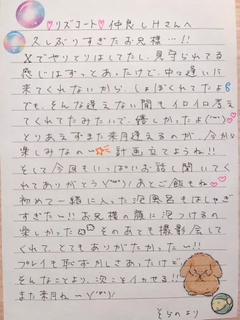 ♡リズコート♡仲良しHさんへ
久しぶりすぎたお兄様…!!
Xでやりとりはしてたし、見守られてる
感じはずっとあったけど、中々逢いに
来てくれないから、しょぼくれてたよ
でも、そんな逢えない間もイロイロ考え
てくれてたみたいで、嬉しかったよ(´`*)♡
とりあえずまた来月逢えるのが、今から
楽しみなの〜 計画立てようね!!
そして今回もいっぱいお話し聞いてく
れてありがとう(´`*) あとご飯もね♡
初めて一緒に入った泡風呂もはしゃぎ
すぎた〜!!お兄様の顔に泡つけるの
楽しかった そのあとも撮影会して
くれて、とてもありがたかった〜!!
プレイも恥ずかしさあったけど
そんなことより、次こそイカせる!!
また来月ね〜(´`*)
そらのより